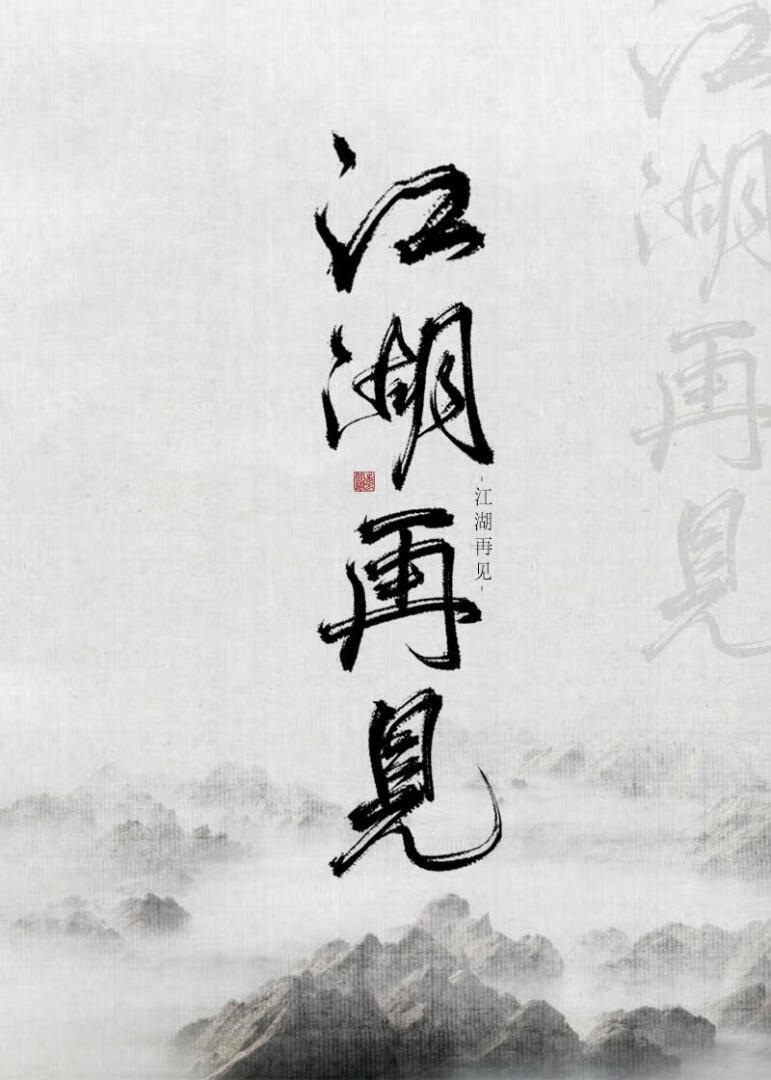 江湖再見
-江湖再见-
江湖再見